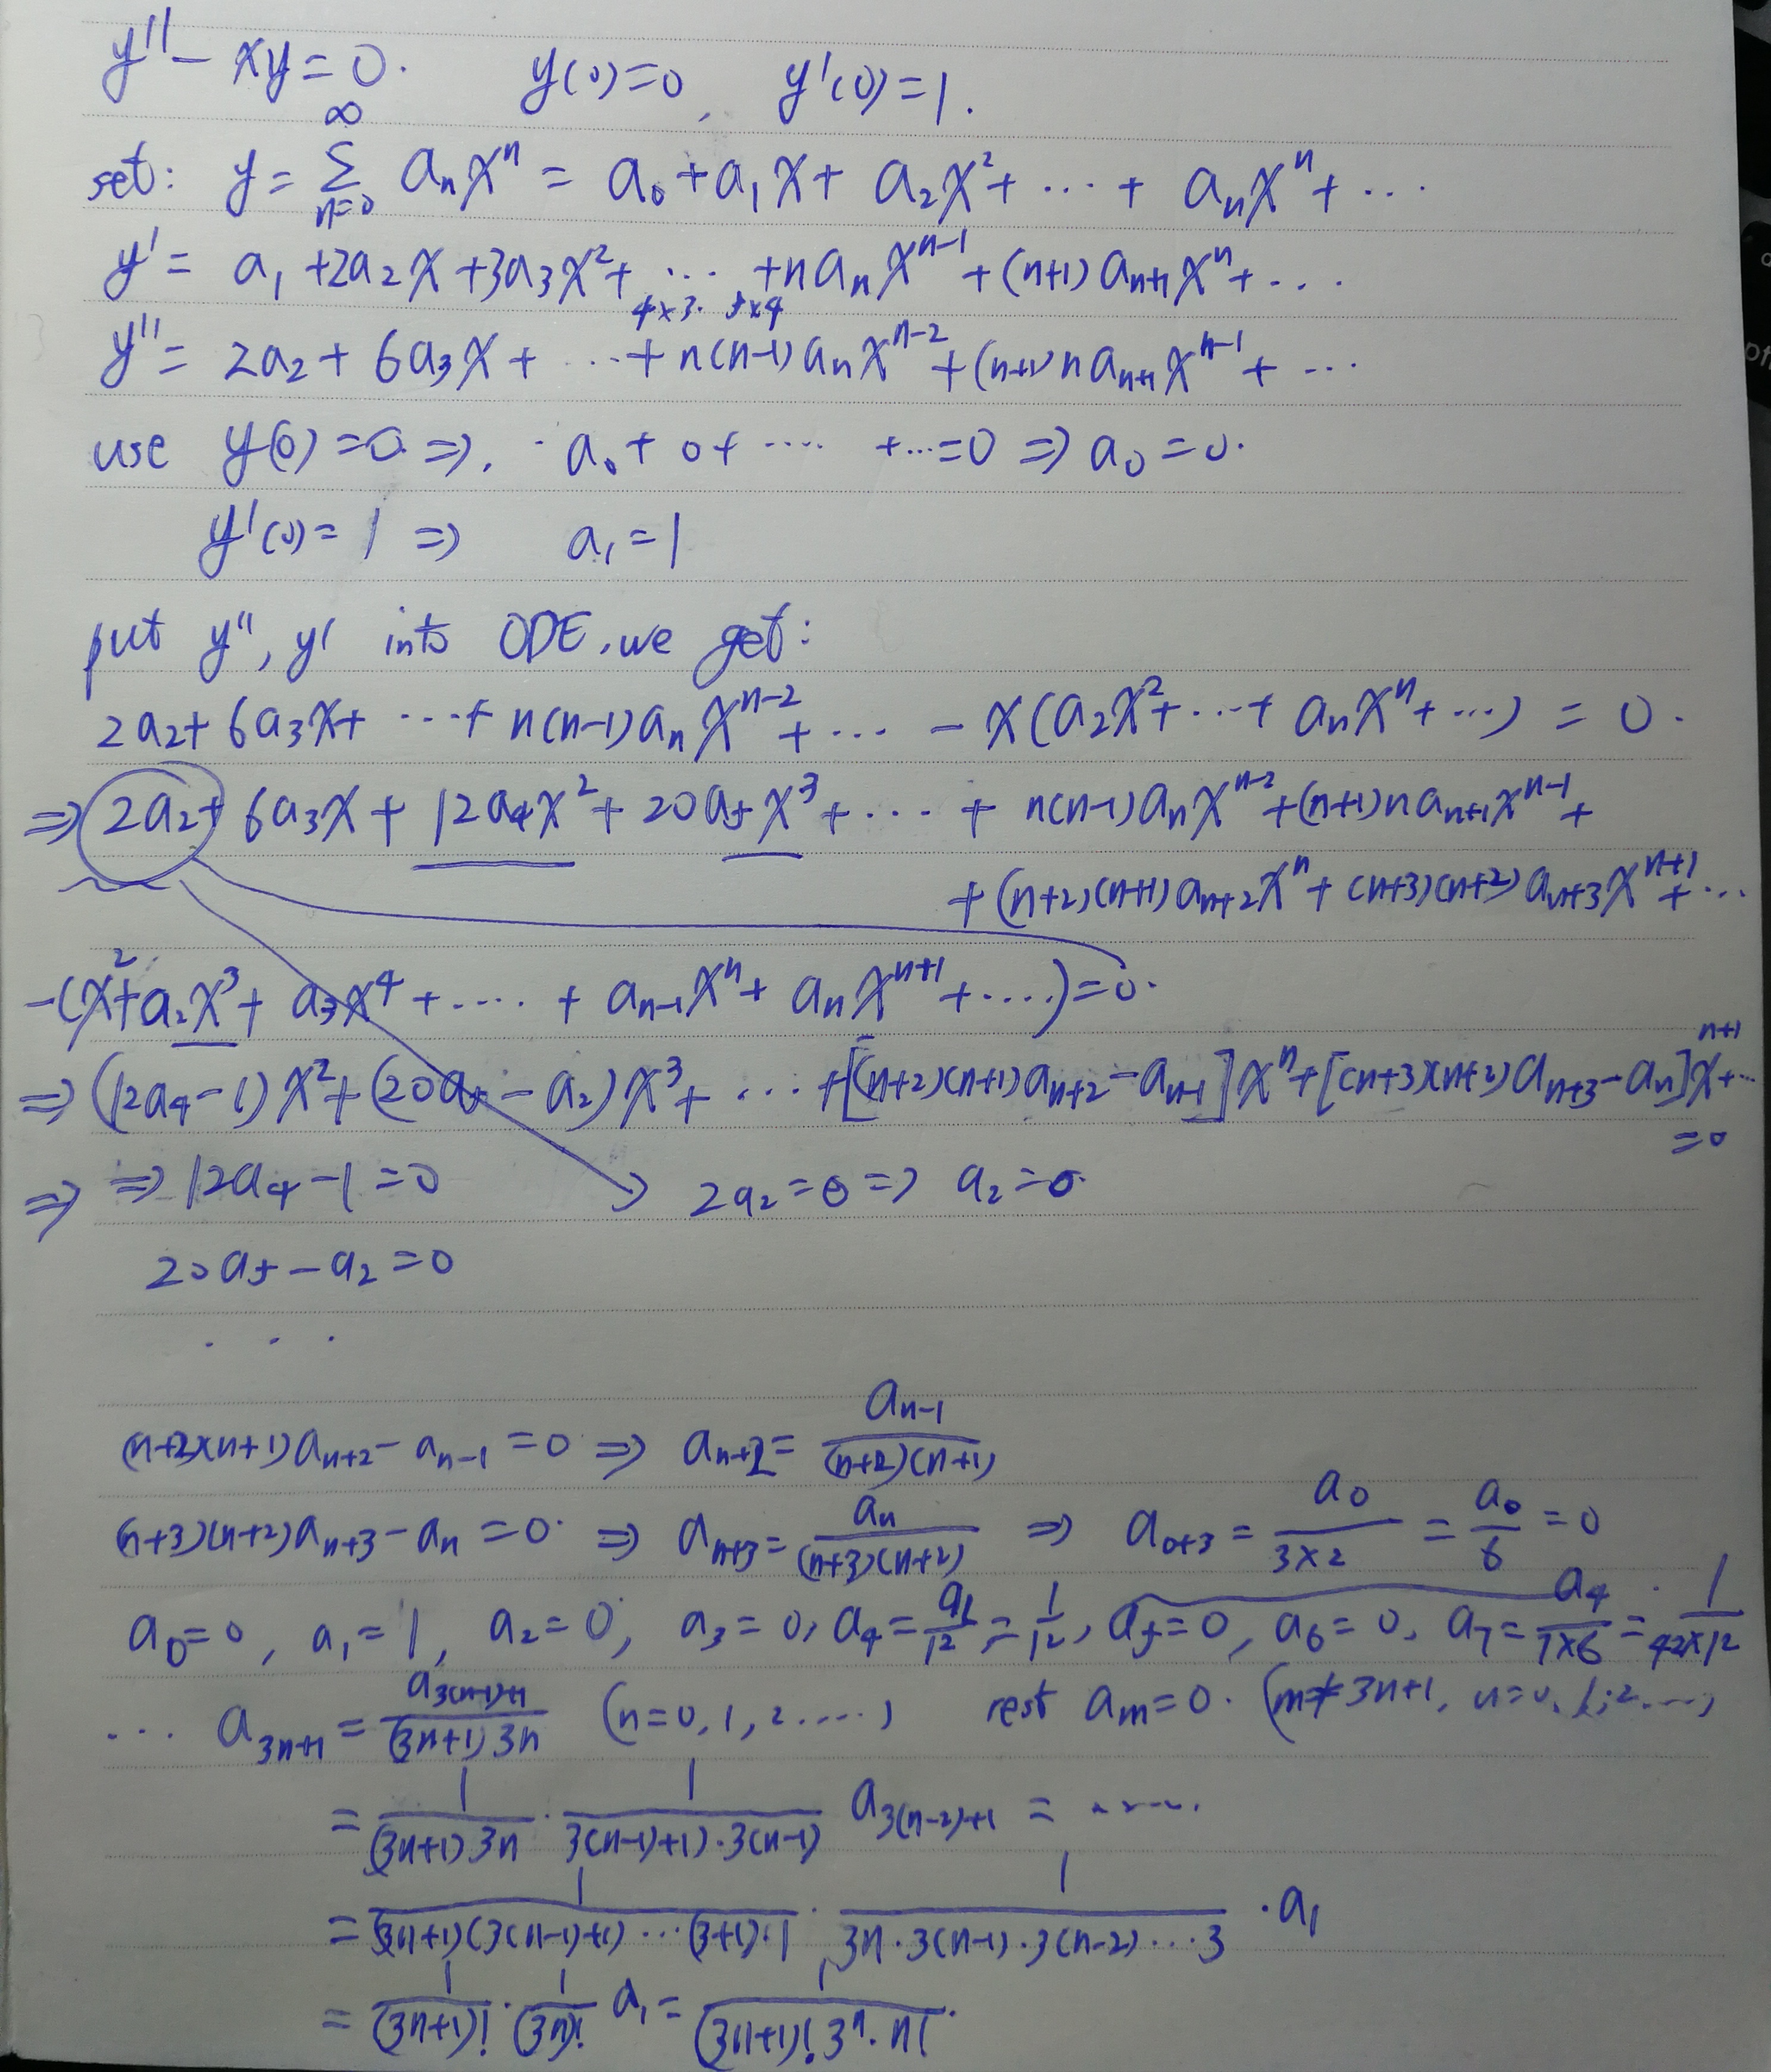 y'' - xy = 0. y(0)=0, y'(0)=1.
set: y = ∑_{n=0}^{∞} aₙxⁿ = a₀ + a₁x + a₂x² + ⋯ + aₙxⁿ + ⋯
y' = a₁ + 2a₂x + 3a₃x² + ⋯ + naₙxⁿ⁻¹ + (n+1)aₙ₊₁xⁿ + ⋯
4×3. 5×4
y'' = 2a₂ + 6a₃x + ⋯ + n(n-1)aₙxⁿ⁻² + (n+1)naₙ₊₁xⁿ⁻¹ + ⋯
use y(0)=0 ⇒. a₀ + 0 + ⋯ + ⋯ = 0 ⇒ a₀ = 0.
y'(0) = 1 ⇒ a₁ = 1
put y'', y' into ODE, we get:
2a₂ + 6a₃x + ⋯ + n(n-1)aₙxⁿ⁻² + ⋯ - x(a₂x² + ⋯ + aₙxⁿ + ⋯) = 0.
⇒ 2a₂ + 6a₃x + 12a₄x² + 20a₅x³ + ⋯ + n(n-1)aₙxⁿ⁻² + (n+1)naₙ₊₁xⁿ⁻¹ +
+ (n+2)(n+1)aₙ₊₂xⁿ + (n+3)(n+2)aₙ₊₃xⁿ⁺¹ + ⋯
-(x² + a₂x³ + a₃x⁴ + ⋯ + aₙ₋₁xⁿ + aₙxⁿ⁺¹ + ⋯) = 0.
⇒ (12a₄ - 1)x² + (20a₅ - a₂)x³ + ⋯ + [(n+2)(n+1)aₙ₊₂ - aₙ₋₁]xⁿ + [(n+3)(n+2)aₙ₊₃ - aₙ]xⁿ⁺¹ + ⋯
= 0
⇒ ⇒ 12a₄ - 1 = 0 2a₂ = 0 ⇒ a₂ = 0.
20a₅ - a₂ = 0
. . .
(n+2)(n+1)aₙ₊₂ - aₙ₋₁ = 0 ⇒ aₙ₊₂ = aₙ₋₁/((n+2)(n+1))
(n+3)(n+2)aₙ₊₃ - aₙ = 0. ⇒ aₙ₊₃ = aₙ/((n+3)(n+2)) ⇒ a₀₊₃ = a₀/(3×2) = a₀/6 = 0
a₀ = 0, a₁ = 1, a₂ = 0, a₃ = 0, a₄ = a₁/12 = 1/12, a₅ = 0, a₆ = 0, a₇ = a₄/(7×6) = 1/(42×12)
⋯ a_{3n+1} = a_{3(n-1)+1}/((3n+1)3n) (n=0,1,2.....) rest aₘ = 0. (m≠3n+1, n=0,1,2....)
= 1/((3n+1)3n) · 1/(3(n-1)+1)·3(n-1) a_{3(n-2)+1} = ......
= 1/((3n+1)(3(n-1)+1)⋯(3+1)·1) · 1/(3n·3(n-1)·3(n-2)⋯3) · a₁
= 1/(3n+1)! · 1/(3n)! a₁ = 1/((3n+1)! 3ⁿ·n!).